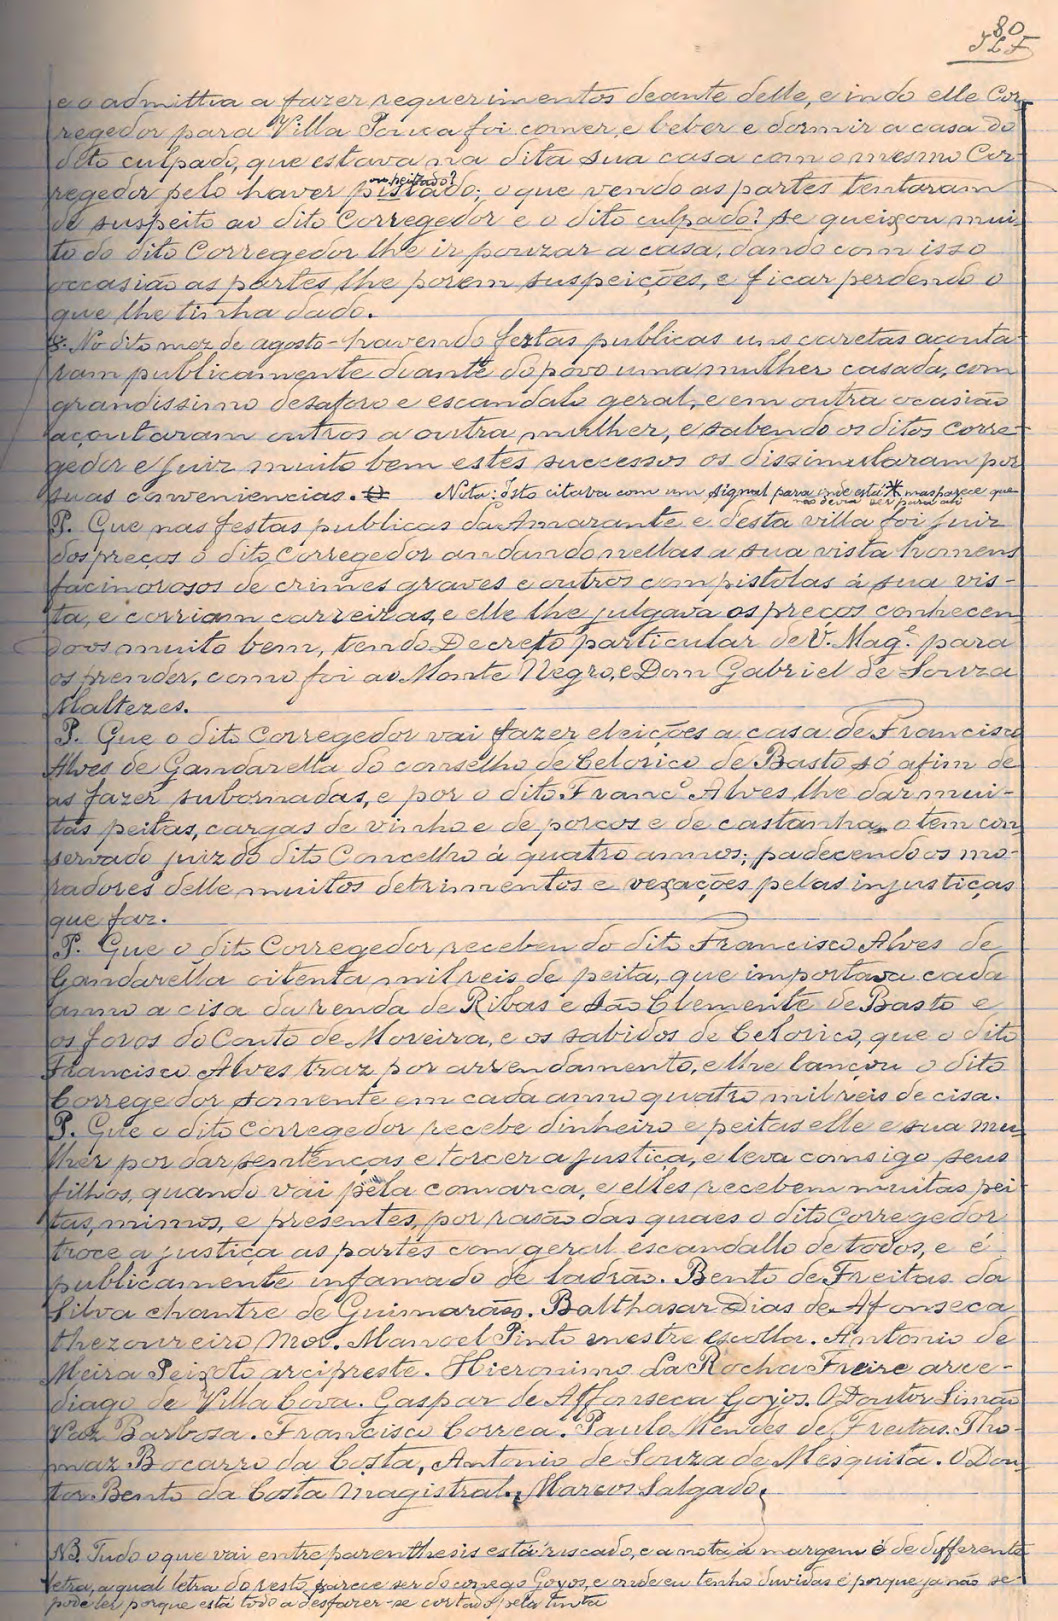 80
JLF
e o admittia a fazer requerimentos deante delle, e indo elle Cor-
regedor para Villa Pouca foi comer, e beber e dormir a casa do
dito culpado, que estava na dita sua casa com o mesmo Cor-
ou peitado?
regedor pelo haver pistado; o que vendo as partes tentaram
de suspeito ao dito Corregedor e o dito culpado? se queixou mui-
to do dito Corregedor lhe ir pouzar a casa, dando com isso
occasião as partes lhe porem suspeições, e ficar perdendo o
que lhe tinha dado.
No dito mez de agosto - havendo festas publicas uns caretas açouta-
ram publicamente diante do povo uma mulher casada, com
grandissimo desaforo e escandalo geral, e em outra ocasião
açoutaram outros a outra mulher, e sabendo os ditos Corre-
gedor e Juiz muito bem estes successos os dissimularam por
suas conveniencias. Nota: Isto citava com um signal para onde está * mas parece que
não devia ser para ali
P. Que nas festas publicas da Amarante e desta villa foi juiz
dos preços o dito Corregedor andando nellas a sua vista homens
facinorosos de crimes graves e outros com pistolas á sua vis-
ta, e corriam carreiras, e elle lhe julgava os preços conhecen-
do os muito bem, tendo Decreto particular de V. Mag.e para
os prender, como foi ao Monte Negro, e Dom Gabriel de Souza
Maltezes.
P. Que o dito Corregedor vai fazer eleições a casa de Francisco
Alves de Gandarella do conselho de Celorico de Basto só afim de
as fazer subornadas, e por o dito Franc.o Alves lhe dar mui-
tas peitas, cargas de vinho e de porcos e de castanha, o tem con-
servado juiz do dito Concelho á quatro annos; padecendo os mo-
radores delle muitos detrimentos e vexações pelas injustiças
que faz.
P. Que o dito Corregedor recebeu do dito Francisco Alves de
Gandarella oitenta mil reis de peita, que importava cada
anno a cisa da renda de Ribas e São Clemente de Basto e
os foros do Couto de Moreira, e os sabidos de Celorico, que o dito
Francisco Alves traz por arrendamento, e lhe lançou o dito
Corregedor somente em cada anno quatro mil reis de cisa.
P. Que o dito Corregedor recebe dinheiro e peitas elle e sua mu-
lher por dar sentenças e torcer a justiça, e leva comsigo seus
filhos, quando vai pela comarca, e elles recebem muitas pei-
tas, mimos, e presentes, por rasão das quaes o dito Corregedor
troce a justiça as partes com geral escandallo de todos, e é
publicamente infamado de ladrão. Bento de Freitas da
Silva chantre de Guimarães. Balthasar Dias de Afonseca
thezoureiro mor. Manoel Pinto mestre escolla. Antonio de
Meira Peixoto arcipreste. Hieronimo da Rocha Freire arce-
diago de Villa Cova. Gaspar de Affonseca Goyos. O Doutor Simão
Vaz Barbosa. Francisco Correa. Paulo Mendes de Freitas. Tho-
maz Bocarro da Costa, Antonio de Souza de Mesquita. O Dou-
tor Bento da Costa Magistral. Marcos Salgado.
NB. Tudo o que vai entre parenthesis está riscado, e a nota á margem é de differente
letra, a qual letra do resto parece ser do conego Goyos, e onde eu tenho duvidas é porque ja não se
pode ler porque está todo a desfazer-se cortado pela tinta